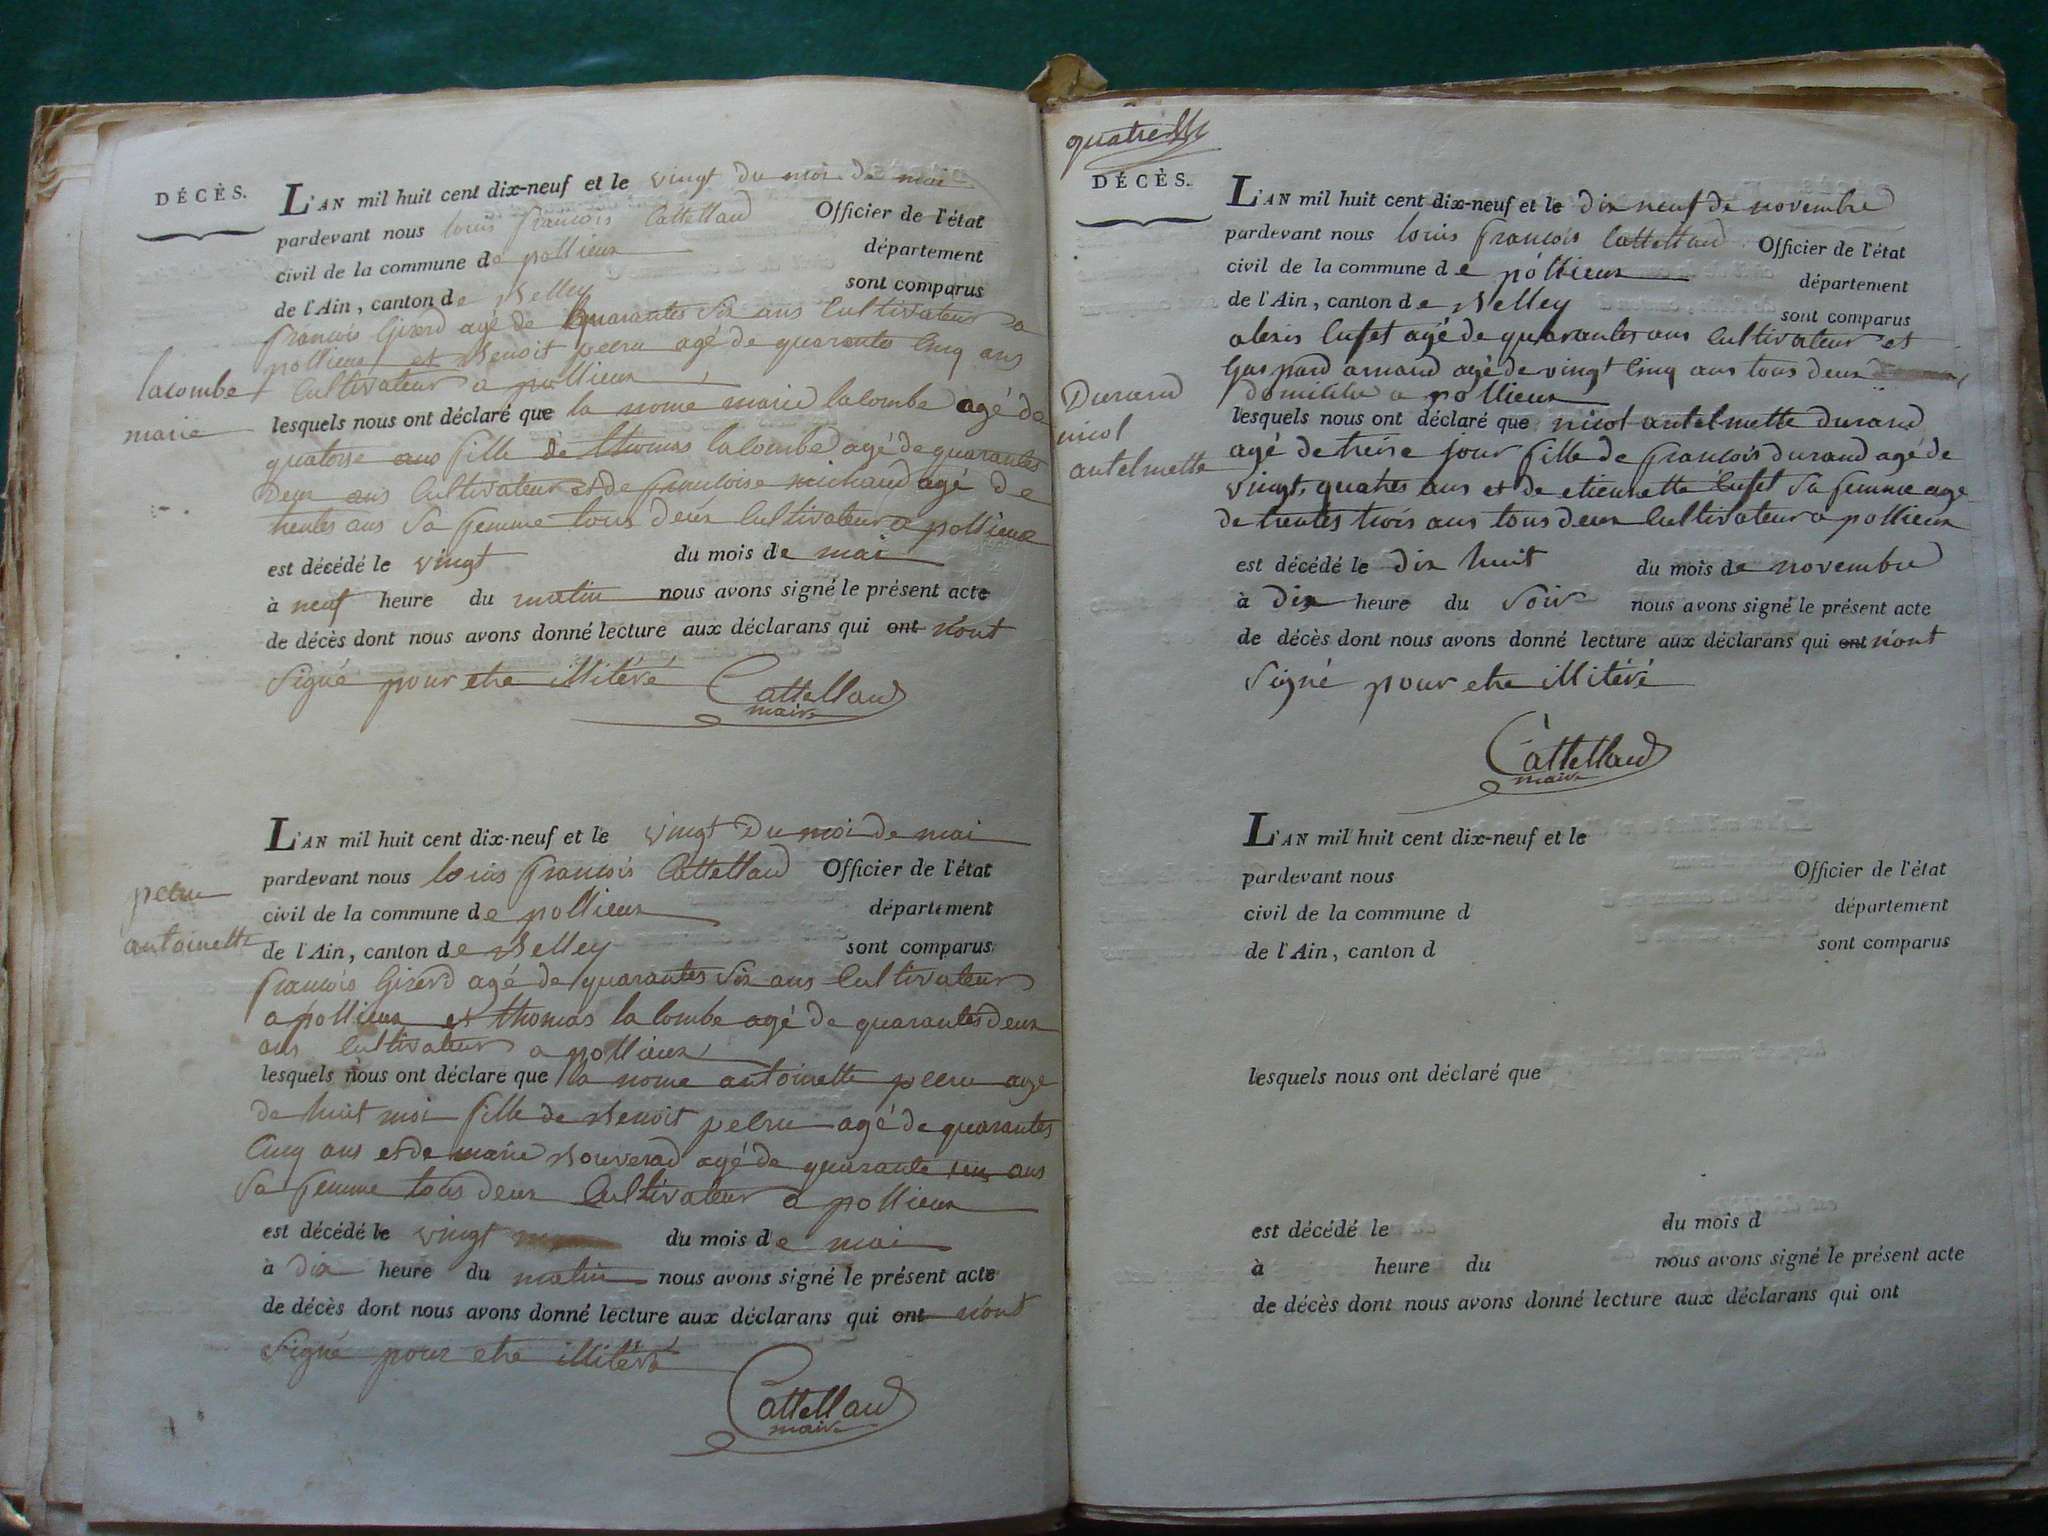 DÉCÈS.
L'AN mil huit cent dix-neuf et le vingt du moi de mai
pardevant nous louis françois Cattelland Officier de l'état
civil de la commune de pollieux département
de l'Ain, canton de Belley sont comparus
françois Girerd agé de quarantes six ans Cultivateur a
pollieux et Benoit pecru agé de quarante Cinq ans
Cultivateur a pollieux
lacombe
marie
lesquels nous ont déclaré que la nome marie lacombe agé de
quatorse ans fille de thomas lacombe agé de quarantes
Deux ans Cultivateur et de françoise michaud agé de
trentes ans Sa femme tous deux Cultivateur a pollieux
est décédé le vingt du mois de mai
à neuf heure du matin nous avons signé le présent acte
de décès dont nous avons donné lecture aux déclarans qui ont n'ont
Signé pour etre illitéré
Cattelland
maire
L'AN mil huit cent dix-neuf et le vingt Du moi de mai
pardevant nous louis françois Cattelland Officier de l'état
civil de la commune de pollieux département
de l'Ain, canton de Belley sont comparus
pecru
antoinette
françois Girerd agé de quarantes Six ans Cultivateur
a pollieux et thomas lacombe agé de quarantes deux
ans Cultivateur a pollieux
lesquels nous ont déclaré que la nome antoinette pecru age
de huit moi fille de Benoit pecru agé de quarantes
Cinq ans et de marie agé de quarante un ans
Sa femme tous deux Cultivateur a pollieux
est décédé le vingt du mois de mai
à dix heure du matin nous avons signé le présent acte
de décès dont nous avons donné lecture aux déclarans qui ont n'ont
Signé pour etre illitéré
Cattelland
maire
DÉCÈS.
L'AN mil huit cent dix-neuf et le dix neuf de novembre
pardevant nous louis françois Cattelland Officier de l'état
civil de la commune de pollieux département
de l'Ain, canton de Belley sont comparus
alexis Cuset agé de quarantes ans Cultivateur et
Gaspard arnaud agé de vingt Cinq ans tous deux
domicilié a pollieux
Durand
nicol
antelmette
lesquels nous ont déclaré que nicol antelmette durand
agé de treise jour fille de françois durand agé de
vingt quatres ans et de etiennette Cuset Sa femme age
de trentes trois ans tous deux Cultivateur a pollieux
est décédé le dix huit du mois de novembre
à Dix heure du Soir nous avons signé le présent acte
de décès dont nous avons donné lecture aux déclarans qui ont n'ont
Signé pour etre illitéré
Cattelland
maire
L'AN mil huit cent dix-neuf et le
pardevant nous Officier de l'état
civil de la commune d département
de l'Ain, canton d sont comparus
lesquels nous ont déclaré que
est décédé le du mois d
à heure du nous avons signé le présent acte
de décès dont nous avons donné lecture aux déclarans qui ont